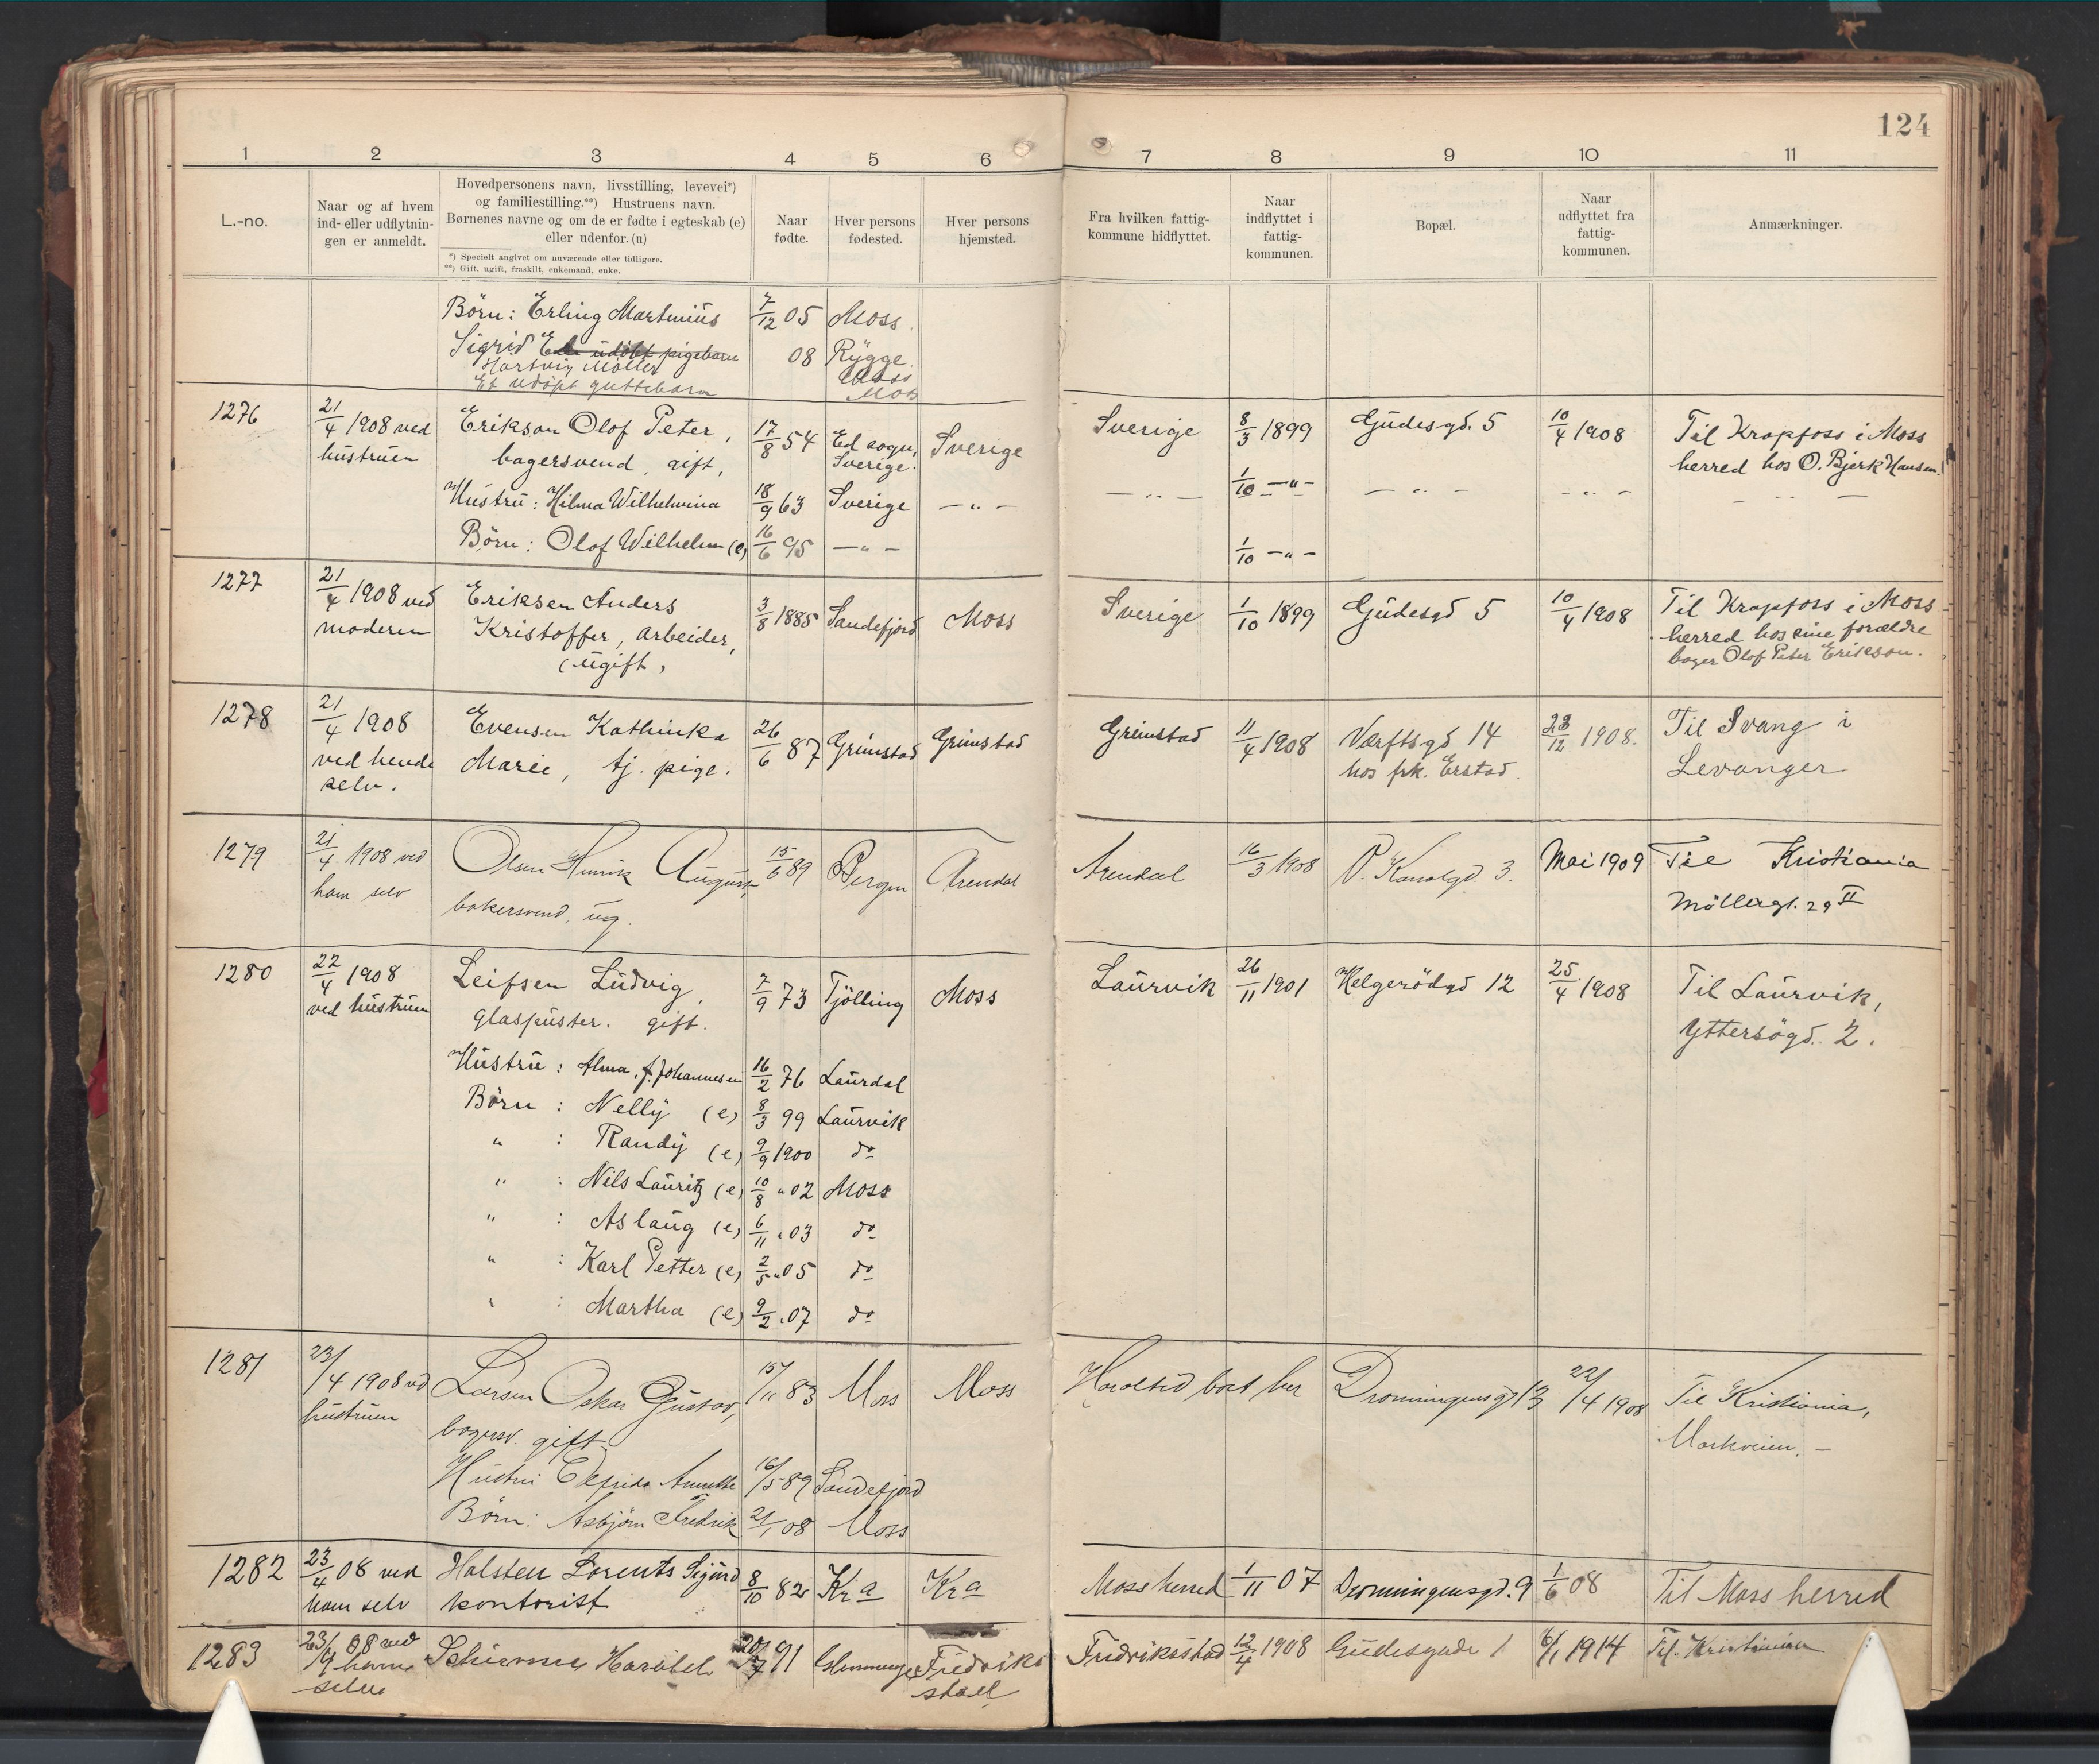 124
1 2 3 4 5 6 7 8 9 10 11
L.-no.
Naar og af hvem
ind- eller udflytnin-
gen er anmeldt.
Hovedpersonens navn, livsstilling, levevei*)
og familiestilling.**) Hustruens navn.
Børnenes navne og om de er fødte i egteskab (e)
eller udenfor. (u)
*) Specielt angivet om nuværende eller tidligere.
**) Gift, ugift, fraskilt, enkemand, enke.
Naar
fødte.
Hver persons
fødested.
Hver persons
hjemsted.
Fra hvilken fattig-
kommune hidflyttet.
Naar
indflyttet i
fattig-
kommunen.
Bopæl.
Naar
udflyttet fra
fattig-
kommunen.
Anmærkninger.
Børn: Erling Martinius 7/12 05 Moss.
Sigrid Et udöbt pigebarn 08 Rygge.
Hartvig Möller Moss
Et udöpt guttebarn Moss
1276 21/4 1908 ved Erikson Olof Peter, 17/8 54 Ed sogn, Sverige Sverige 8/3 1899 Gudesgd. 5 10/4 1908 Til Krapfoss i Moss
hustruen bagersvend, gift, Sverige. herred hos O. Bjerk Hansen.
Hustru: Hilma Wilhelmina 18/9 63 Sverige — „ — — „ — 1/10 — „ — — „ — — „ — — „ —
Börn: Olof Wilhelm (e) 16/6 95 — „ — 1/10 — „ —
1277 21/4 1908 ved Eriksen Anders 3/8 1885 Sandefjord Moss Sverige 1/10 1899 Gudesgd 5 10/4 1908 Til Krapfoss i Moss
moderen Kristoffer, arbeider, herred hos sine forældre
(ugift, bager Olof Peter Erikson.
1278 21/4 1908 Evensen Kathinka 26/6 87 Grimstad Grimstad Grimstad 11/4 1908 Værftsgd 14 23/12 1908. Til Svang i
ved hende Marie, tj. pige. hos frk. Erstad. Levanger
selv.
1279 21/4 1908 ved Olsen Hinrik August, 15/6 89 Bergen Arendal Arendal 16/3 1908 P. Kanalgd. 3. Mai 1909 Til Kristiania
ham selv bakersvend, ug. Möllergt. 29 II
1280 22/4 1908 Leifsen Ludvig, 7/9 73 Tjölling Moss Laurvik 26/11 1901 Helgerödgd 12 25/4 1908 Til Laurvik,
ved hustruen glaspuster. gift. Yttersögd. 2.
Hustru: Alma, f. Johannesen 16/2 76 Laurdal
Börn: Nelly (e) 8/3 99 Laurvik
„ : Randy (e) 9/9 1900 do
„ : Nils Lauritz (e) 10/8 „ 02 Moss
„ : Aslaug (e) 6/11 „ 03 do
„ : Karl Petter (e) 2/5 „ 05 do
„ : Martha (e) 9/2 „ 07 do
1281 23/4 1908 ved Larsen Oskar Gustav, 15/11 83 Moss Moss Har altid boet her Dronningensgd 13 22/4 1908 Til Kristiania,
hustruen bagersv. gift. Markveien. —
Hustru Elfrida Annette 16/5 89 Sandefjord
Børn: Asbjørn Fredrik 21/1 08 Moss
1282 23/4 08 ved Halsten Lorents Sigurd 8/10 82 Kra Kra Moss herred 1/11 07 Dronningensgd. 9 1/6 08 Til Moss herred
ham selv kontorist
1283 23/4 08 ved Harald 20/7 91 Glemminge Fredriks Fredriksstad 12/4 1908 Gudesgade 1 6/1 1914 Til Kristiania
ham stad
selv